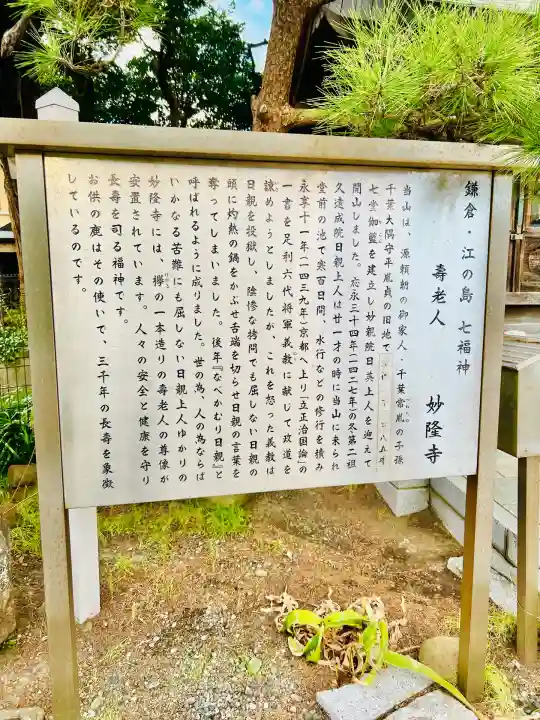 鎌倉・江の島 七福神
壽老人 妙隆寺
当山は、源頼朝の御家人・千葉常胤の子孫
千葉大隅守平胤貞の旧地で
七堂伽藍を建立し妙親院日英上人を迎えて
開山しました。応永三十四年(一四二七年)の冬、第二祖
久遠成院日親上人は廿一才の時に当山に来られ
堂前の池で寒百日間、水行などの修行を積み
永享十一年(一四三九年)京都へ上り「立正治国論」の
一書を足利六代将軍義教に献じて政道を
諫めようとしましたが、これを怒った義教は
日親を投獄し、陰惨な拷問でも屈しない日親の
頭に灼熱の鍋をかぶせ舌端を切らせ日親の言葉を
奪ってしまいました。後年『なべかむり日親』と
呼ばれるように成りました。世の為、人の為ならば
いかなる苦難にも屈しない日親上人ゆかりの
妙隆寺には、欅の一本造りの壽老人の尊像が
安置されています。人々の安全と健康を守り
長壽を司る福神です。
お供の鹿はその使いで、三千年の長壽を象徴
しているのです。